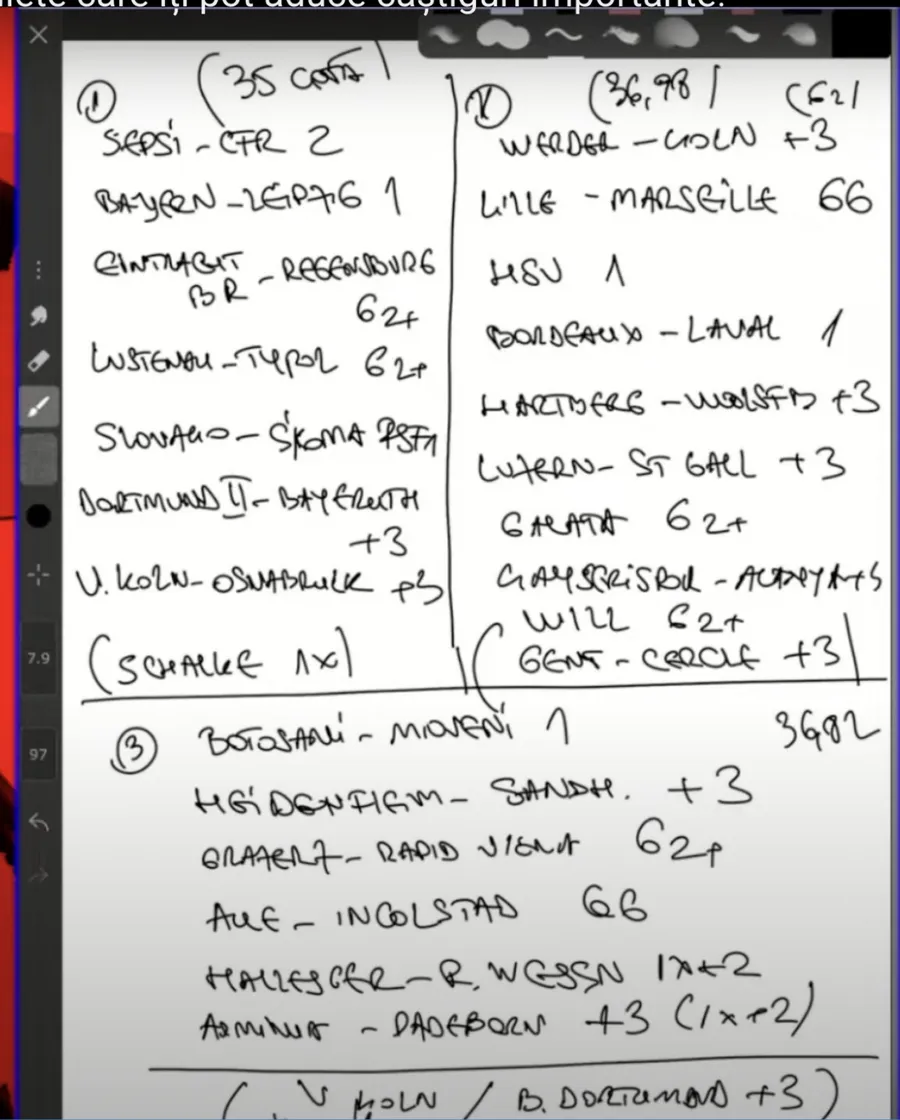 ilete care îți pot aduce câștiguri importante.
① (35 COTA)
SEPSi - CFR 2
BAYERN - LEIPZIG 1
EINTRACHT
BR - REGENSBURG
G2+
LUSTENAU - TYROL G2+
SLOVACKO - SKOMA PSF1
DORTMUND II - BAYREUTH
+3
V. KOLN - OSNABRUCK +3
(SCHALKE 1X)
② (36,98) (G2)
WERDER - KOLN +3
LILLE - MARSEILLE GG
HSV 1
BORDEAUX - LAVAL 1
HARTBERG - WOLSFB +3
LUZERN - ST GALL +3
GALATA G2+
- +3
WILL G2+
(GENT - CERCLE +3)
③ BOTOSANi - MIOVENI 1 36,82
HEiDENHEIM - SANDH. +3
GRAZER7 - RAPID VIENA G2+
AUE - INGOLSTAD GG
HALLESCER - R. WESSN 1X+2
ARMINIA - PADEBORN +3 (1X+2)
(V KOLN / B. DORTMUND +3)
7.9
97